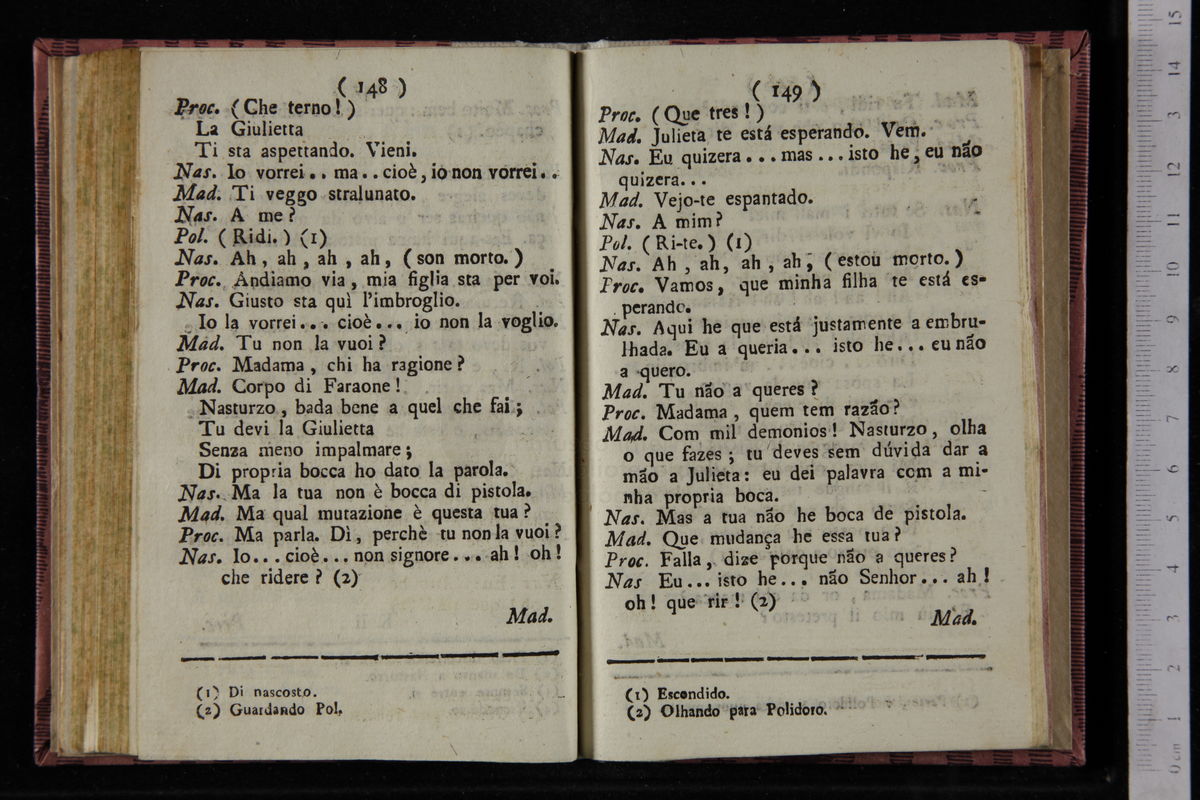 ( 148 )
Proc. (Che terno! )
La Giulietta
Ti sta aspettando. Vieni.
Nas. Io vorrei.. ma.. cioè, io non vorrei..
Mad. Ti veggo stralunato.
Nas. A me?
Pol. (Ridi.) (1)
Nas. Ah, ah, ah, ah, (son morto.)
Proc. Andiamo via, mia figlia sta per voi.
Nas. Giusto sta quì l'imbroglio.
Io la vorrei... cioè... io non la voglio.
Mad. Tu non la vuoi?
Proc. Madama, chi ha ragione?
Mad. Corpo di Faraone!
Nasturzo, bada bene a quel che fai;
Tu devi la Giulietta
Senza meno impalmare;
Di propria bocca ho dato la parola.
Nas. Ma la tua non è bocca di pistola.
Mad. Ma qual mutazione è questa tua?
Proc. Ma parla. Dì, perchè tu non la vuoi?
Nas. Io... cioè... non signore... ah! oh!
che ridere? (2)
Mad.
(1) Di nascosto.
(2) Guardando Pol.
( 149 )
Proc. (Que tres!)
Mad. Julieta te está esperando. Vem.
Nas. Eu quizera... mas... isto he, eu não
quizera...
Mad. Vejo-te espantado.
Nas. A mim?
Pol. (Ri-te.) (1)
Nas. Ah, ah, ah, ah, (estou morto.)
Proc. Vamos, que minha filha te está es-
perando.
Nas. Aqui he que está justamente a embru-
lhada. Eu a queria... isto he... eu não
a quero.
Mad. Tu não a queres?
Proc. Madama, quem tem razão?
Mad. Com mil demonios! Nasturzo, olha
o que fazes; tu deves sem dúvida dar a
mão a Julieta: eu dei palavra com a mi-
nha propria boca.
Nas. Mas a tua não he boca de pistola.
Mad. Que mudança he essa tua?
Proc. Falla, dize porque não a queres?
Nas Eu... isto he... não Senhor... ah!
oh! que rir! (2)
Mad.
(1) Escondido.
(2) Olhando para Polidoro.
0 cm 1 2 3 4 5 6 7 8 9 10 11 12 13 14 15